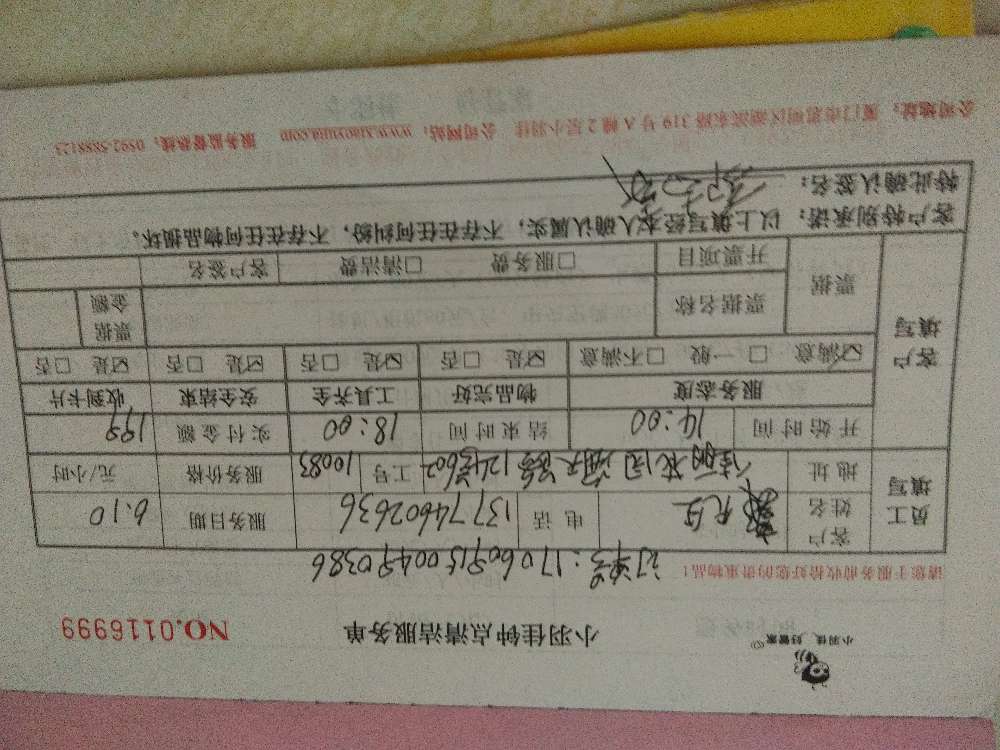 小羽佳 好管家
小羽佳钟点清洁服务单 NO.0116999
请您于服务前收拾好您的贵重物品！
订单号：1706091500490386
员工填写 客户姓名 电话 13774602636 服务日期 6.10
地址 工号 10083 服务价格 元/小时
开始时间 14:00 结束时间 18:00 实付金额 199
客户填写 服务态度 物品完好 工具齐全 安全结束 收到卡片
☑满意 □一般 □不满意 ☑是 □否 ☑是 □否 ☑是 □否 ☑是 □否
票据 票据名称 票据金额
开票项目 □服务费 □清洁费 客户签名
客户特别承诺：以上填写经本人确认属实，不存在任何纠纷，不存在任何物品损坏。
特此确认签名：
公司地址：厦门市思明区湖滨东路319号A幢2层小羽佳 公司网站：www.xiaoyujia.com 服务监督热线：0592-5888123